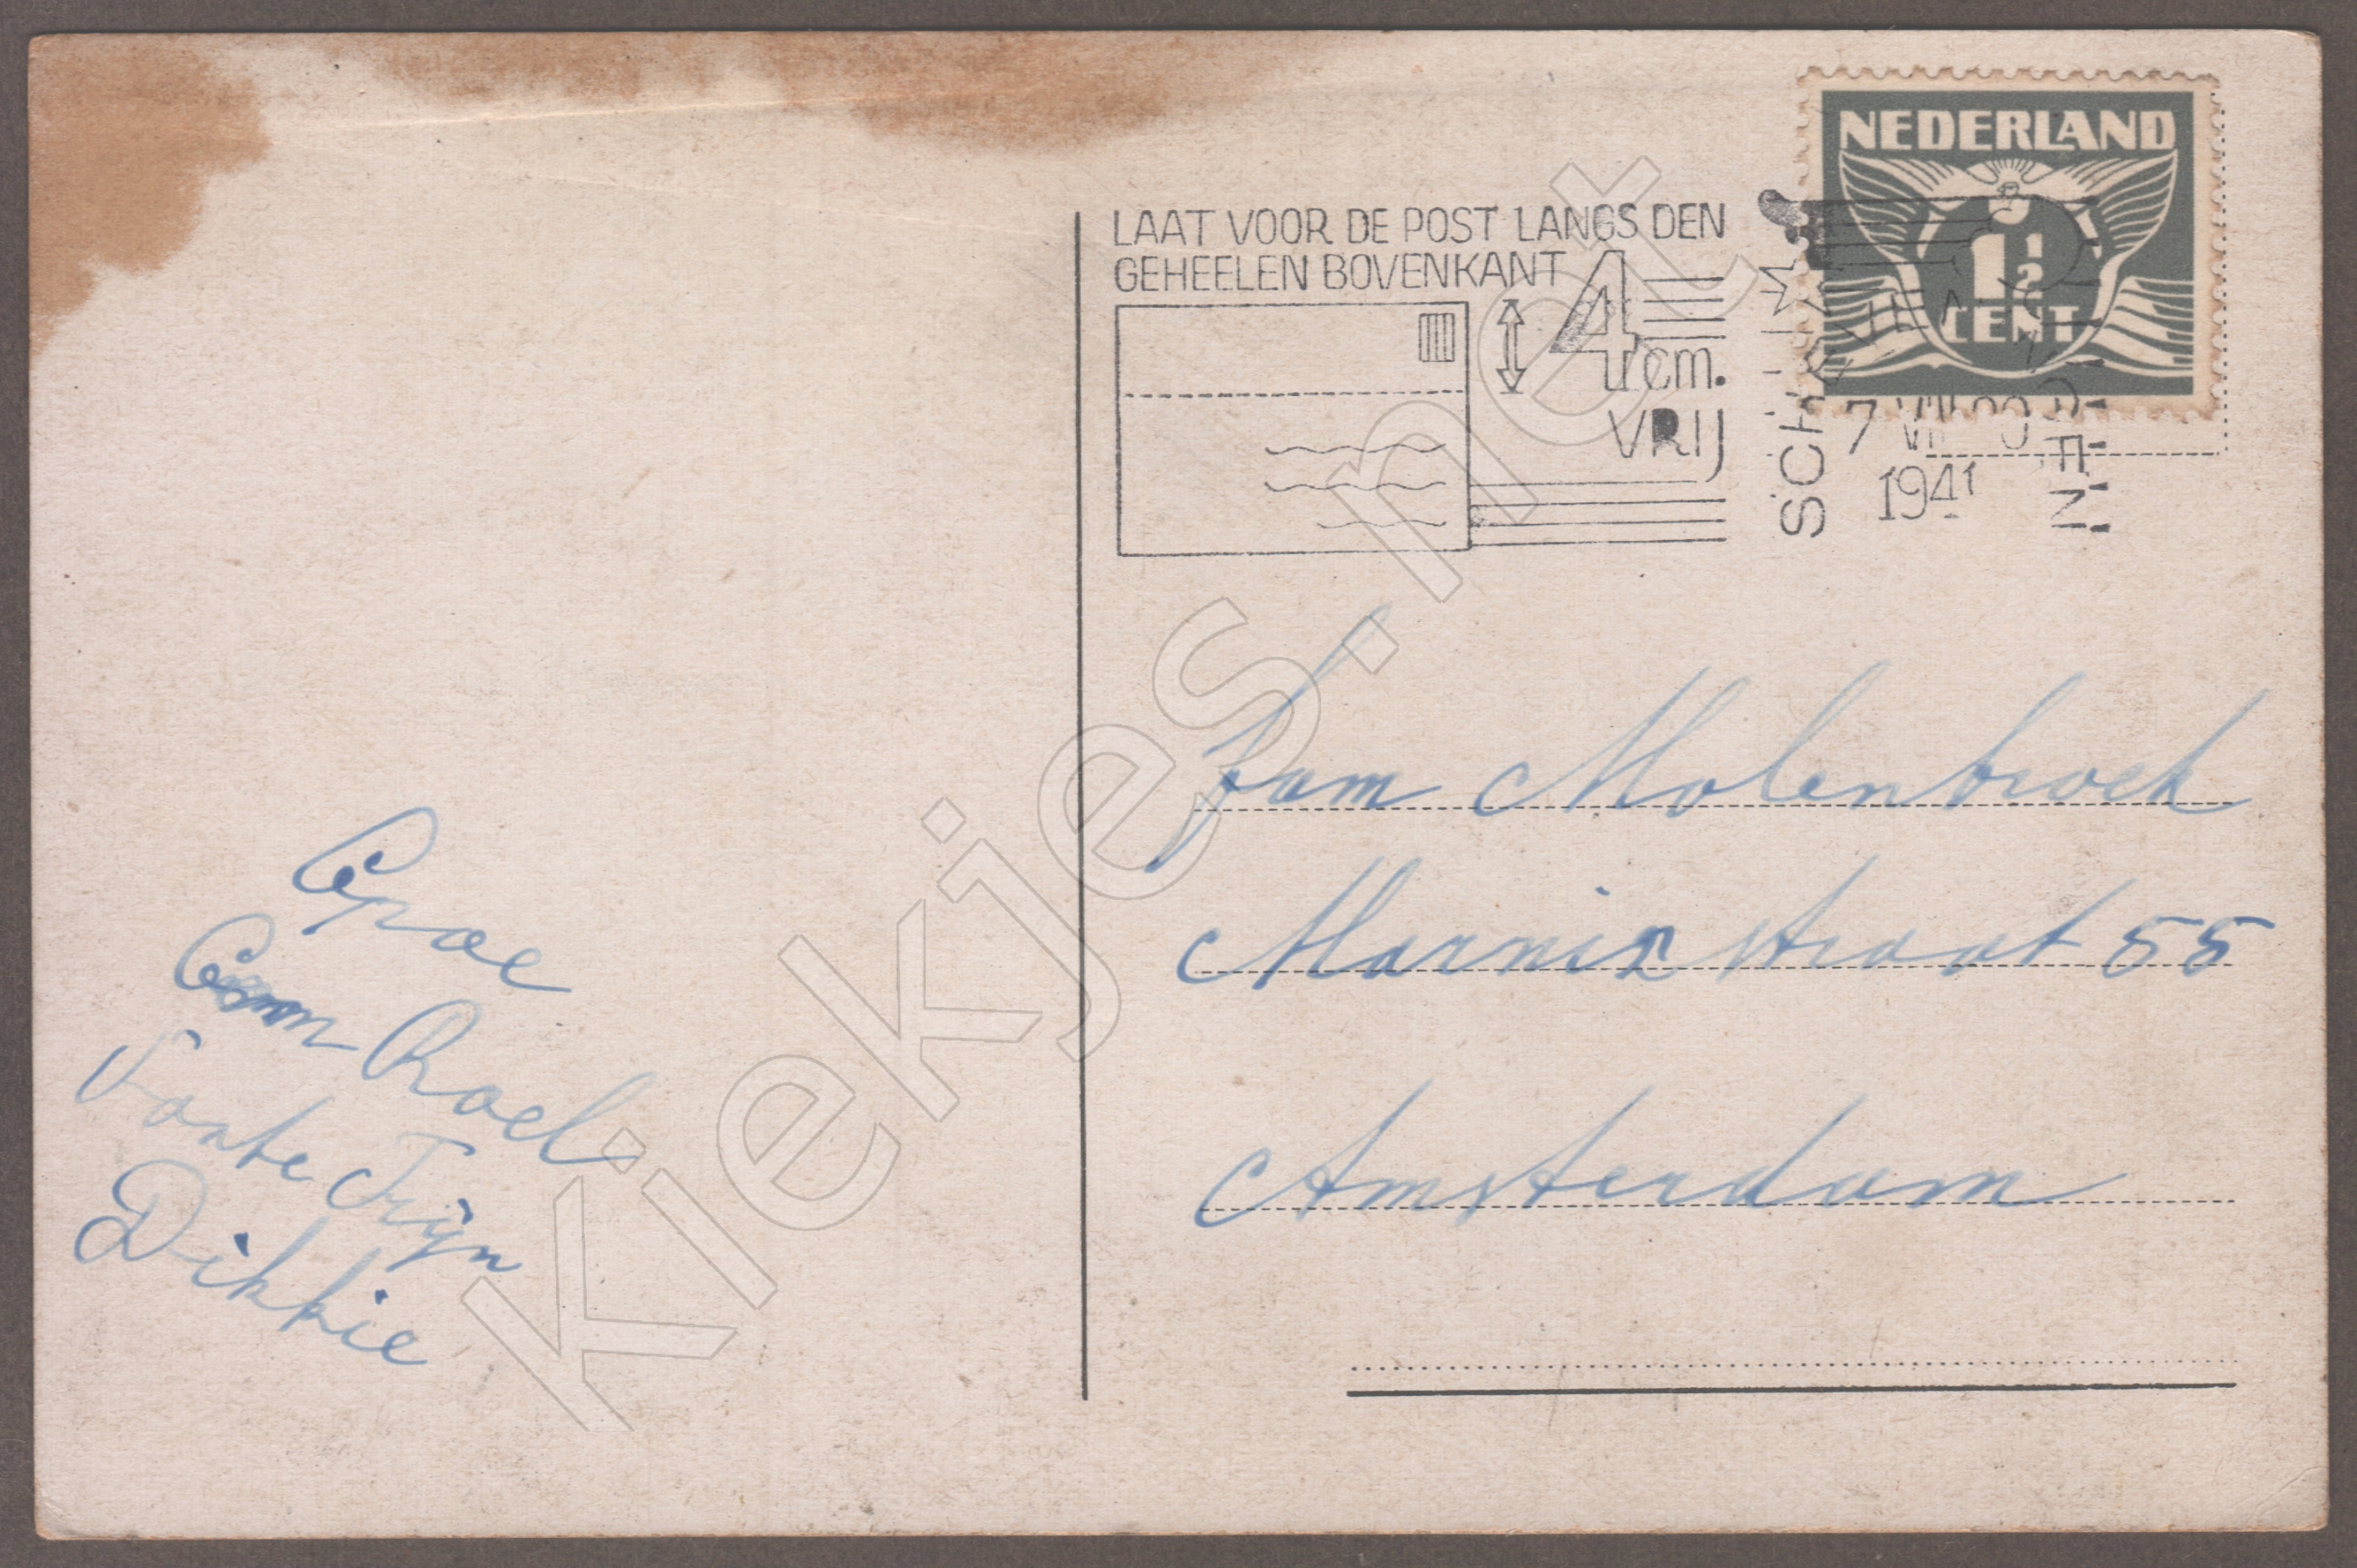 NEDERLAND
1½
CENT
LAAT VOOR DE POST LANGS DEN
GEHEELEN BOVENKANT
4 cm.
VRIJ
7 VII
1941
Fam Molenbroek
Marnixstraat 55
Amsterdam
Opoe
Oom Roel
Tante Trijn
Dikkie
Kiekjes.net